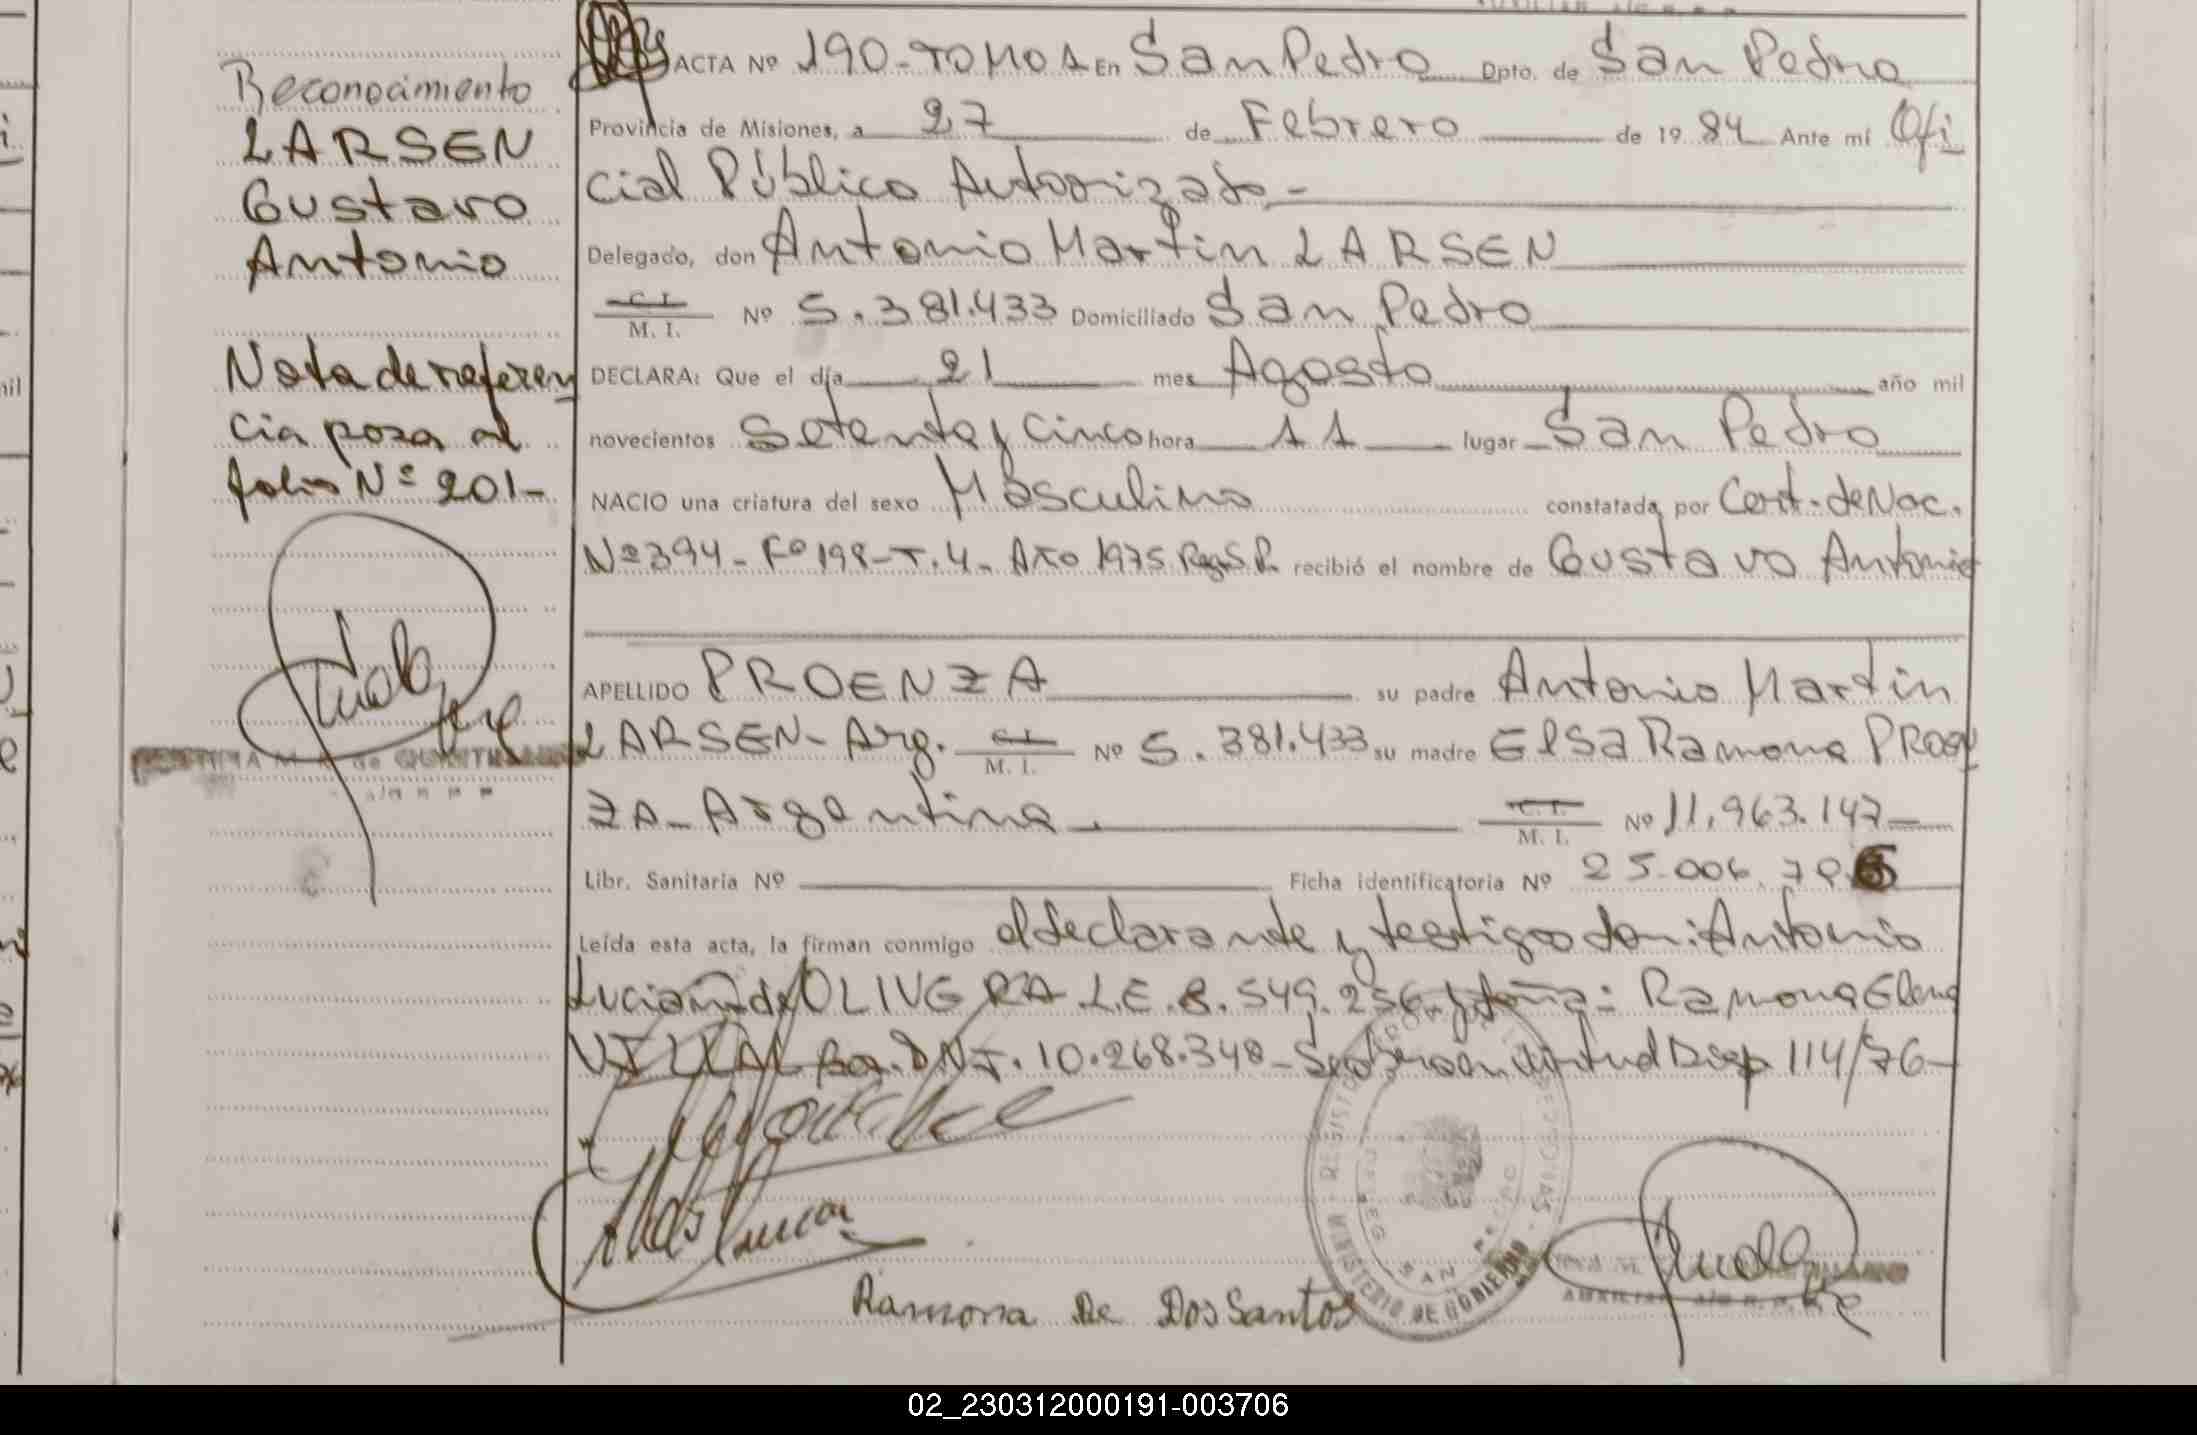 Reconocimiento
LARSEN
Gustavo
Antonio
Nota de referen
cia pasa al
folio Nº 201-
ACTA Nº 190-TOMO 1 En San Pedro Dpto. de San Pedro
Provincia de Misiones, a 27 de Febrero de 1984 Ante mí Ofi
cial Público Autorizado-
Delegado, don Antonio Martin LARSEN
C. I.
M. I. Nº 5.381.433 Domiciliado San Pedro
DECLARA: Que el día 21 mes Agosto año mil
novecientos Setenta y Cinco hora 11 lugar San Pedro
NACIO una criatura del sexo Masculino constatada por Cert. de Nac.
Nº 394- Fº 198-T.4- Año 1975 Reg. S.P. recibió el nombre de Gustavo Antonio
APELLIDO PROENZA su padre Antonio Martin
LARSEN- Arg. C. I.
M. I. Nº 5.381.433 su madre Elsa Ramona PROEN
ZA- Argentina C. I.
M. I. Nº 11.963.147
Libr. Sanitaria Nº Ficha identificatoria Nº 25.006.706
Leída esta acta, la firman conmigo el declarante y testigos don: Antonio
Luciano de OLIVERA L.E. 8.549.256 y doña: Ramona Elena
VILLALBA. DNI. 10.268.348- virtud Disp 114/76-
Ramona De Dos Santos
MINISTERIO DE GOBIERNO
SAN PEDRO
AUXILIAR
02_230312000191-003706